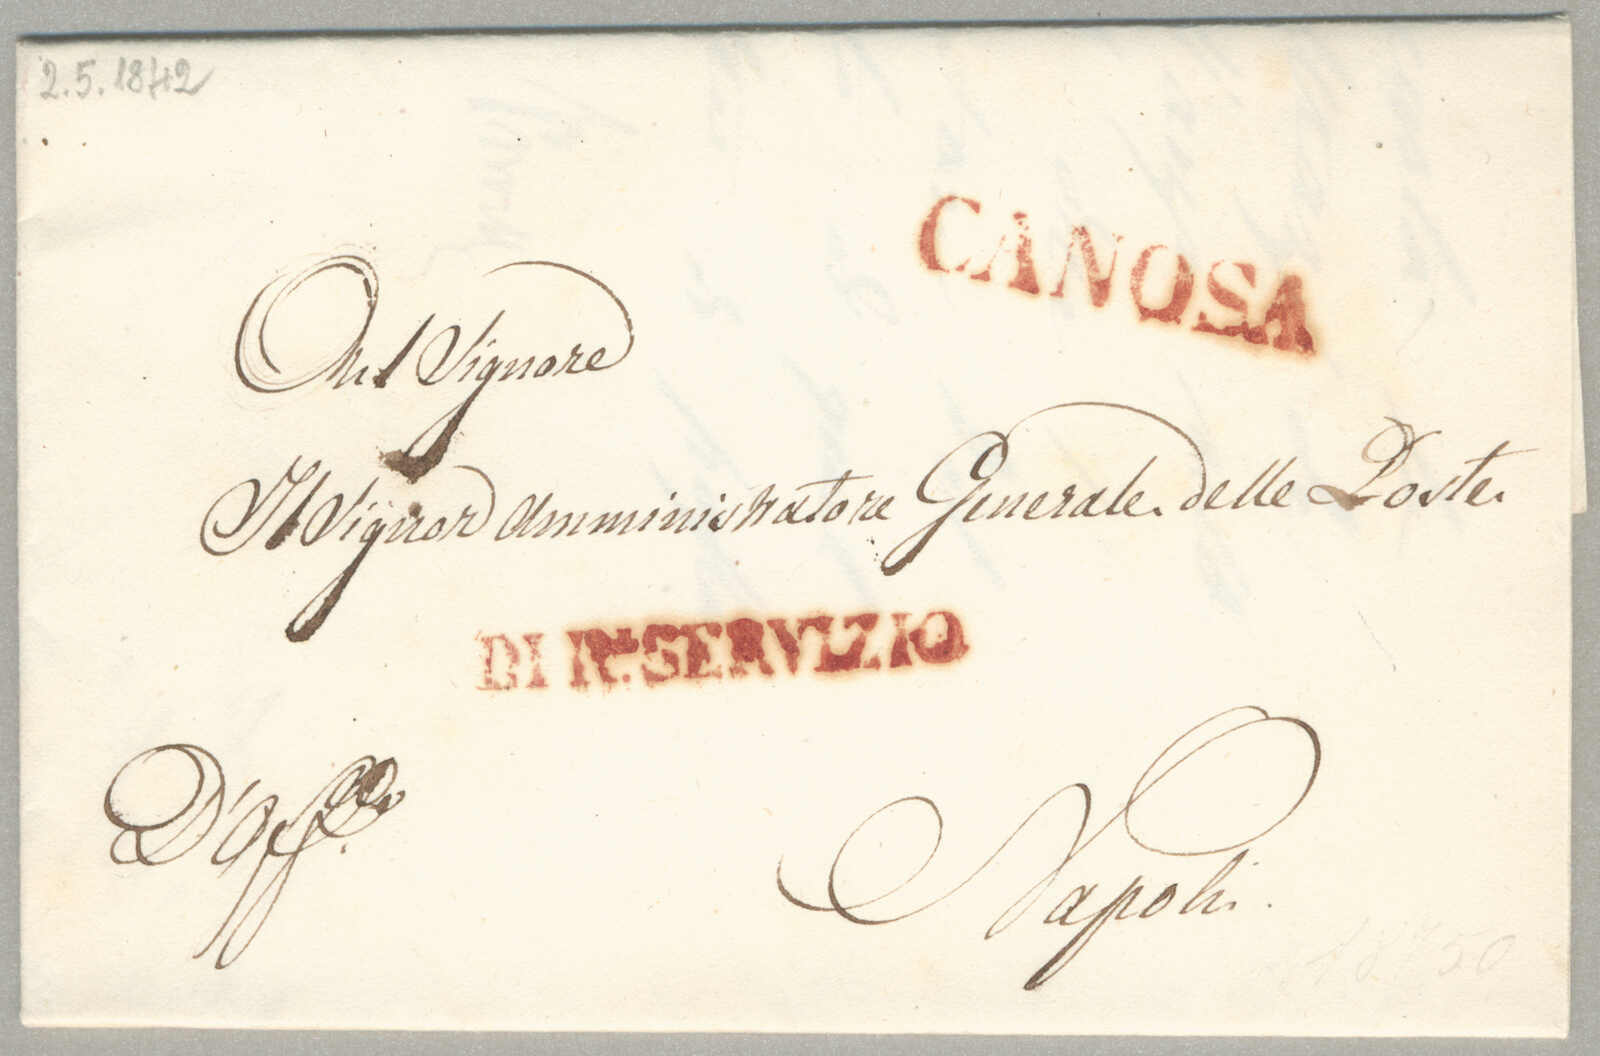 2.5.1842
CANOSA
Al Signore
Il Signor Amministratore Generale delle Poste
DI Rl. SERVIZIO
D'Off.
Napoli.